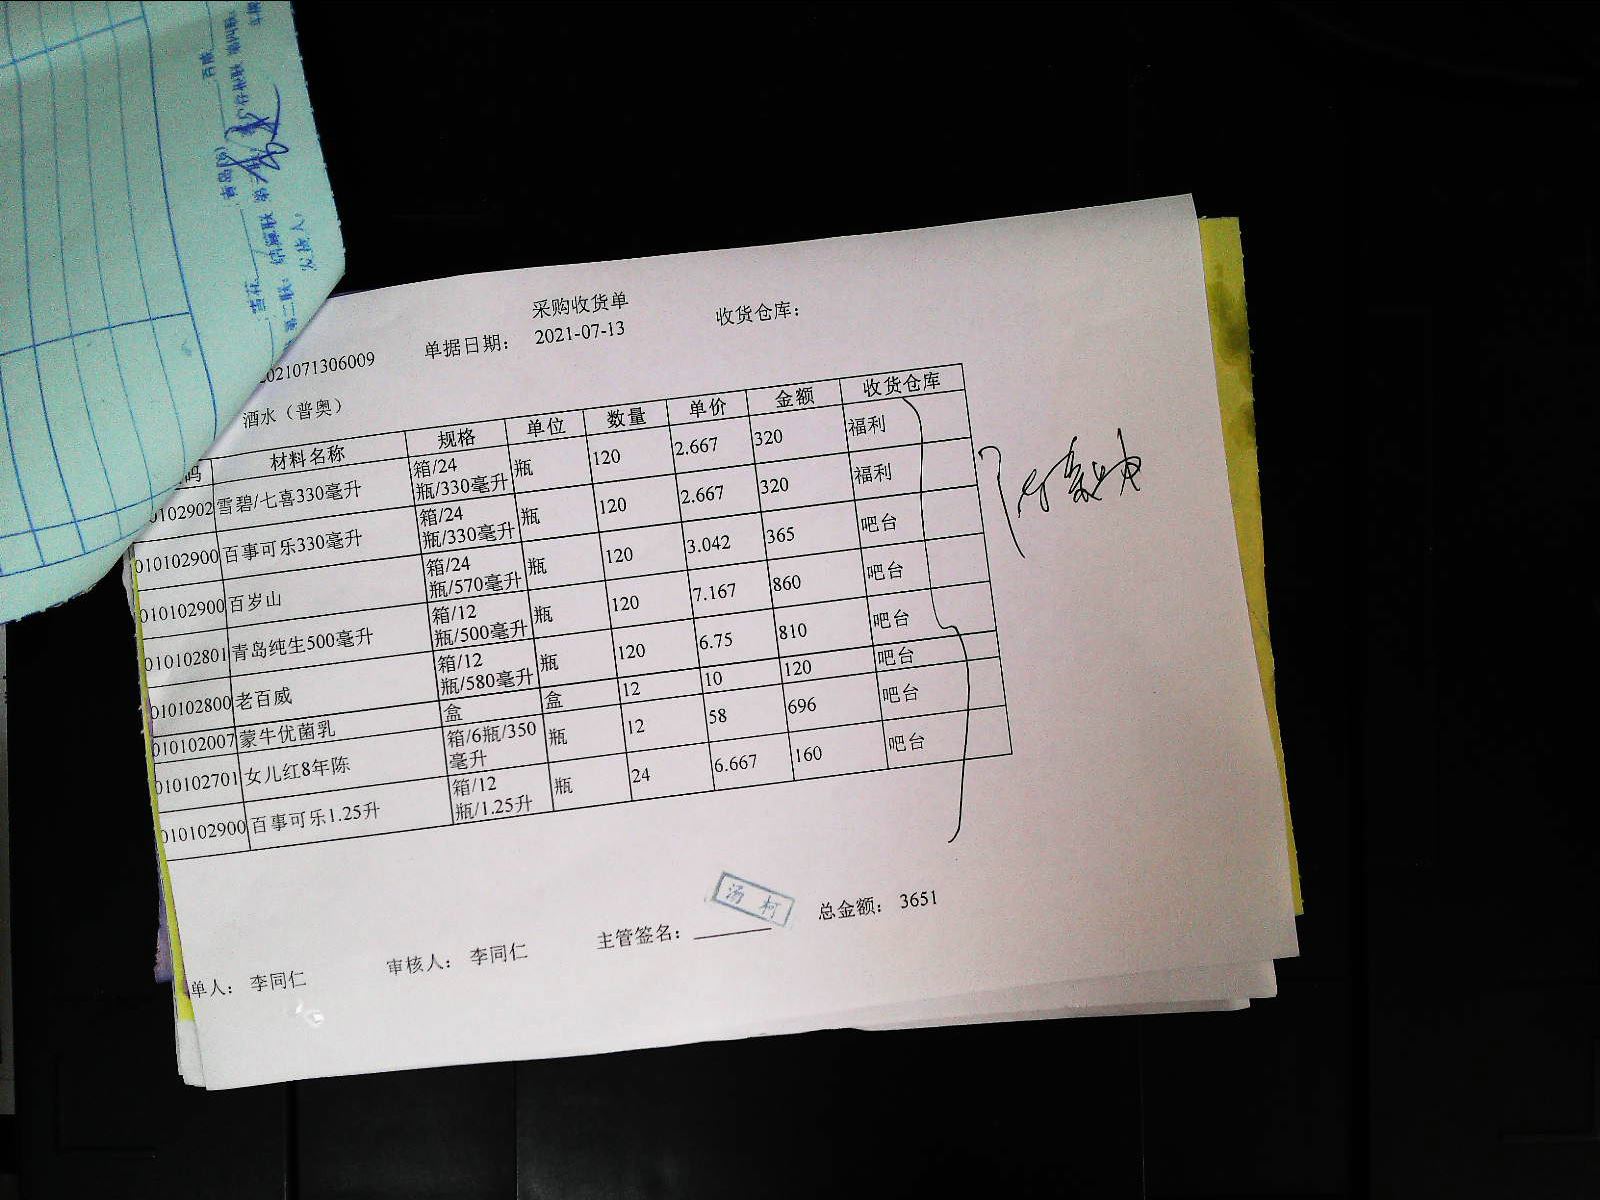 采购收货单
2021071306009 单据日期： 2021-07-13 收货仓库：
酒水（普奥）
码 材料名称 规格 单位 数量 单价 金额 收货仓库
0102902 雪碧/七喜330毫升 箱/24瓶/330毫升 瓶 120 2.667 320 福利
010102900 百事可乐330毫升 箱/24瓶/330毫升 瓶 120 2.667 320 福利
010102900 百岁山 箱/24瓶/570毫升 瓶 120 3.042 365 吧台
010102801 青岛纯生500毫升 箱/12瓶/500毫升 瓶 120 7.167 860 吧台
010102800 老百威 箱/12瓶/580毫升 瓶 120 6.75 810 吧台
010102007 蒙牛优菌乳 盒 盒 12 10 120 吧台
010102701 女儿红8年陈 箱/6瓶/350毫升 瓶 12 58 696 吧台
010102900 百事可乐1.25升 箱/12瓶/1.25升 瓶 24 6.667 160 吧台
单人： 李同仁 审核人： 李同仁 主管签名： 汤柯 总金额： 3651